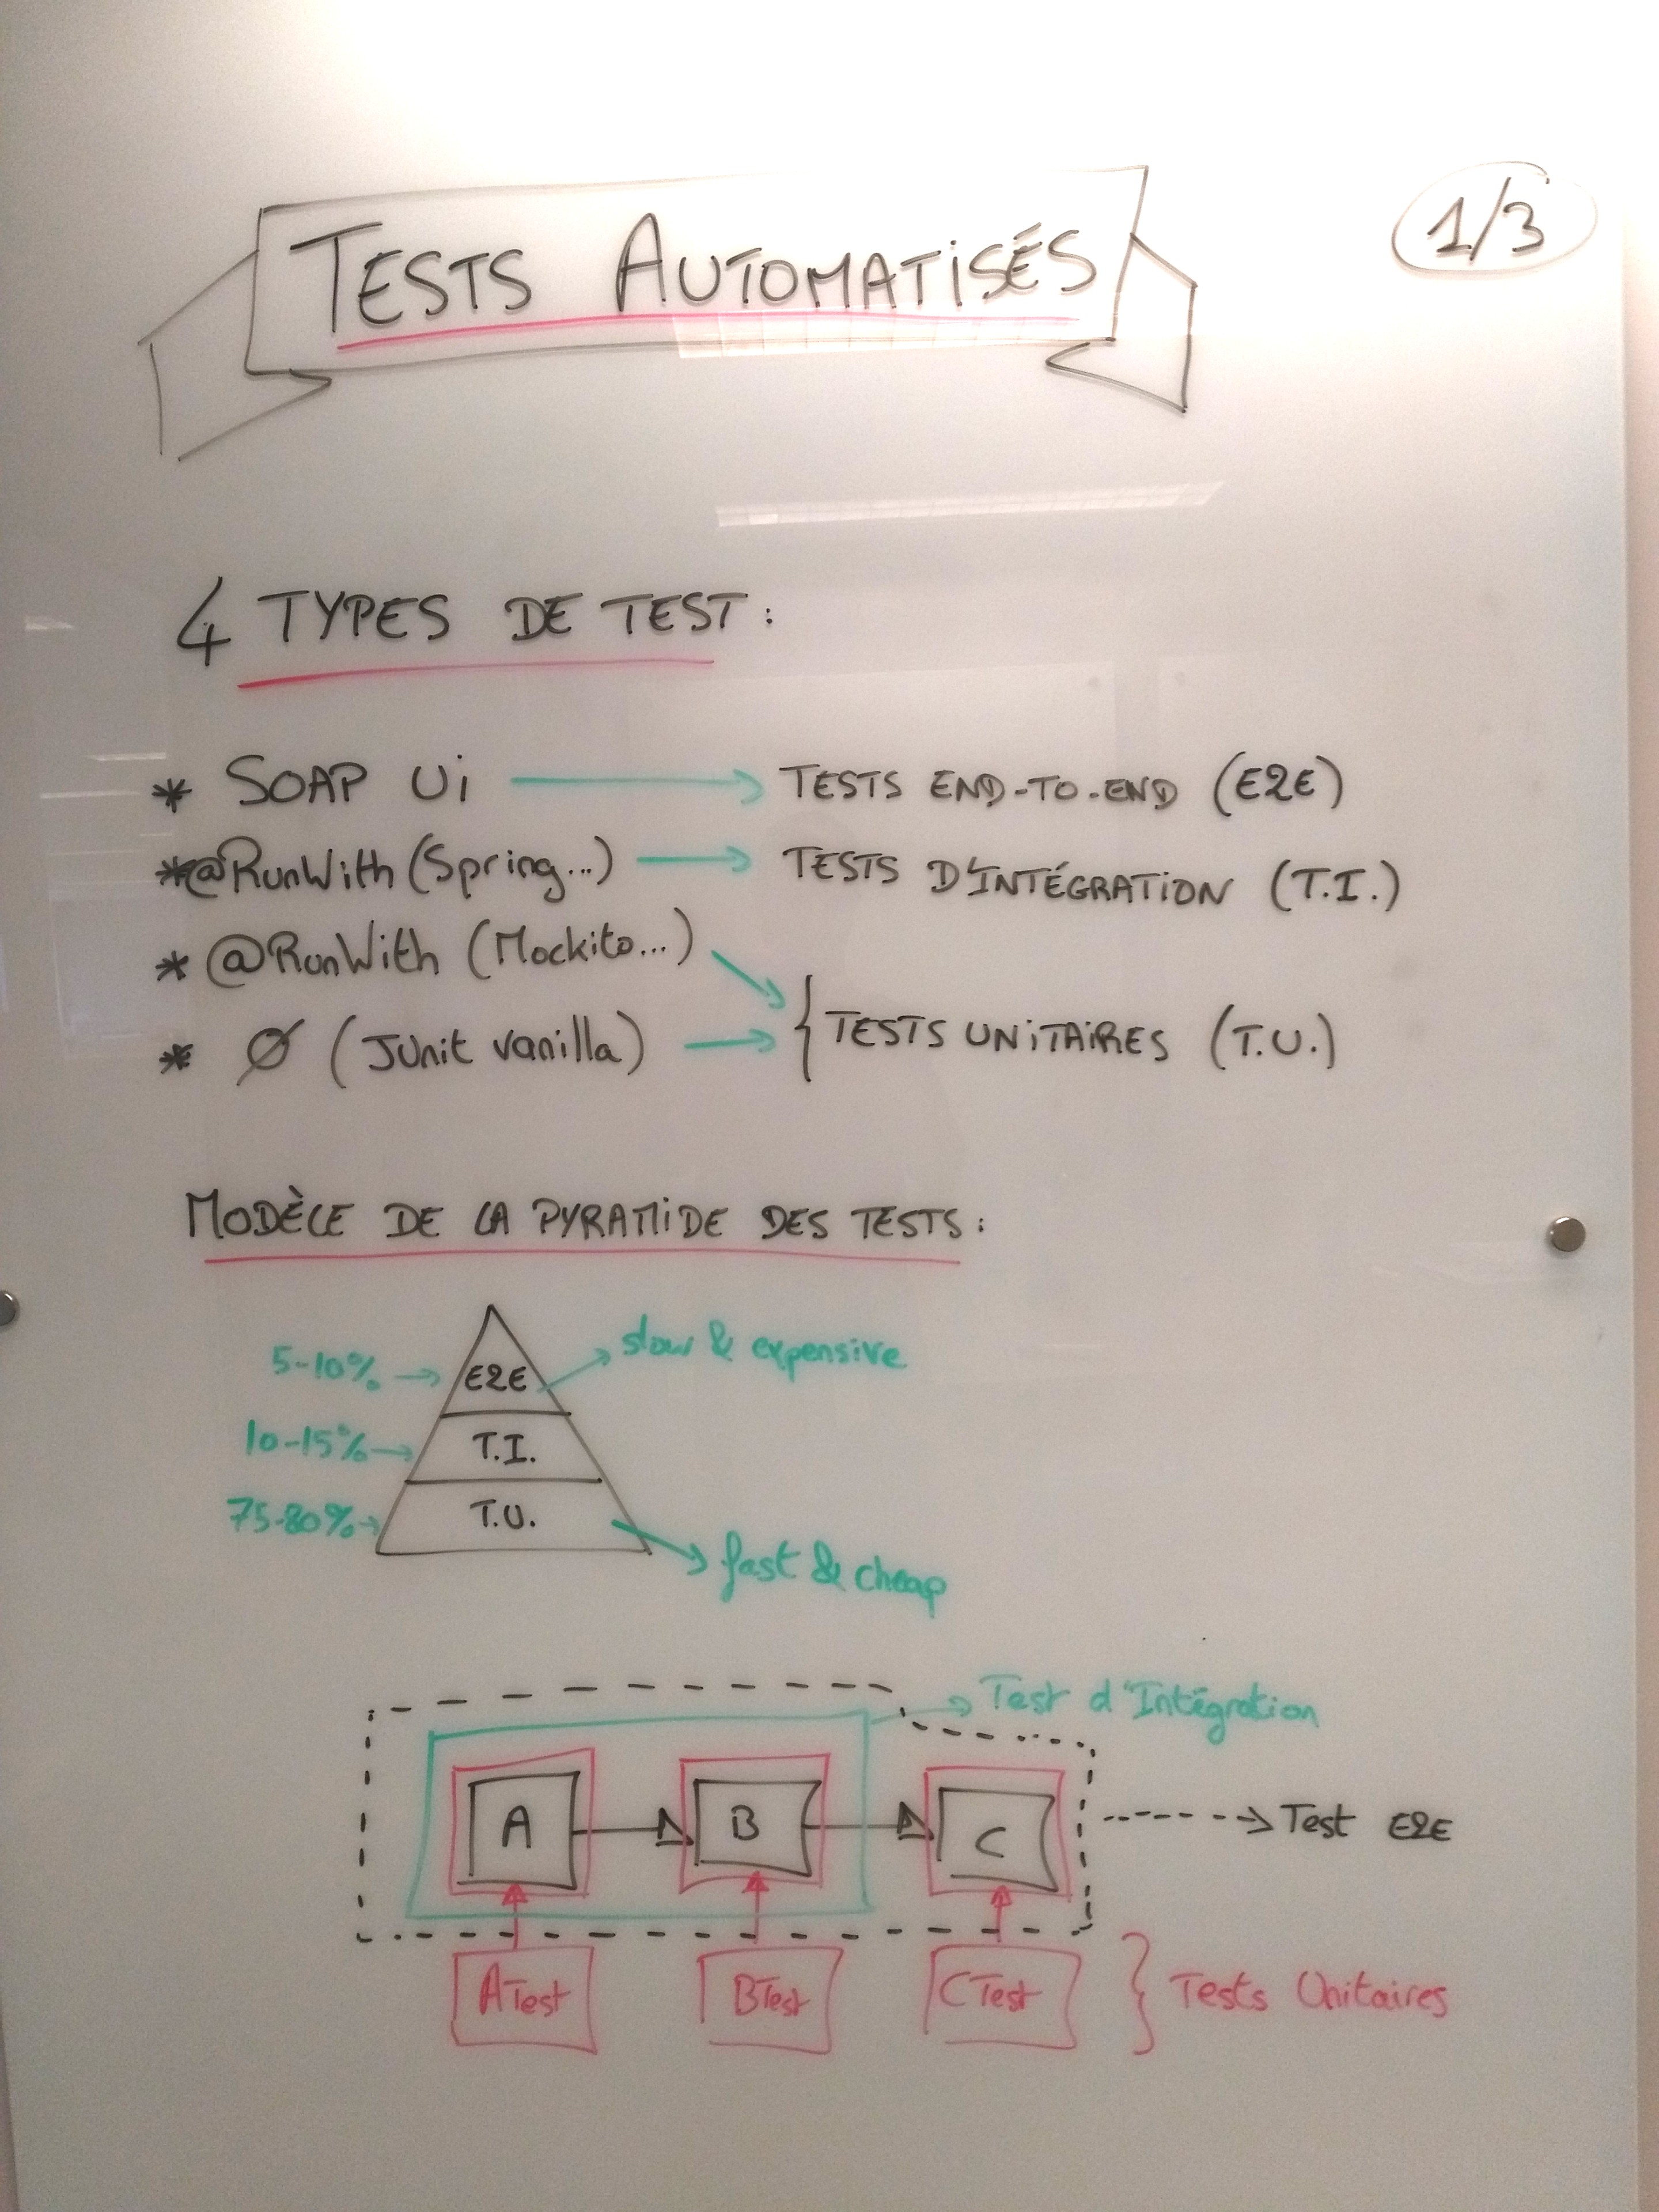 TESTS AUTOMATISÉS
1/3
4 TYPES DE TEST :
* SOAP Ui → TESTS END-TO-END (E2E)
*@RunWith (Spring...) → TESTS D'INTÉGRATION (T.I.)
* @RunWith (Mockito...)
* Ø (JUnit vanilla) → { TESTS UNITAIRES (T.U.)
MODÈLE DE LA PYRAMIDE DES TESTS :
5-10% → E2E → slow & expensive
10-15% → T.I.
75-80% → T.U. → fast & cheap
Test d'Intégration
A B C Test E2E
ATest BTest CTest } Tests Unitaires